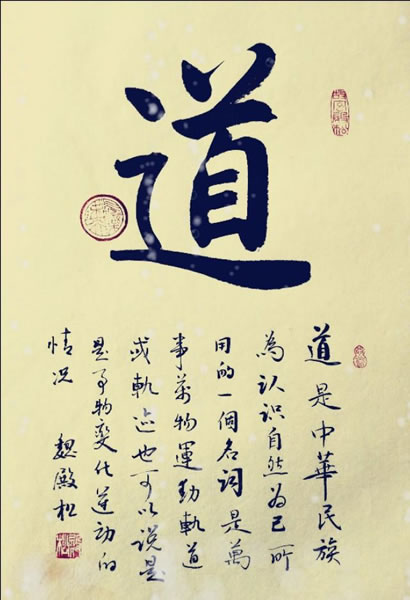 道
道是中華民族
為认识自然為己所
用的一個名词是萬
事萬物運動軌道
或軌迹也可以說是
是事物變化运动的
情况 魏殿松